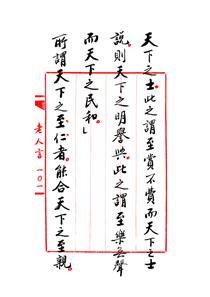 天下之士。此之謂至賞不費而天下之士
說。則天下之明譽興。此之謂至樂無聲
而天下之民和。」
所謂天下之至仁者。能合天下之至親。
老人言 一〇一